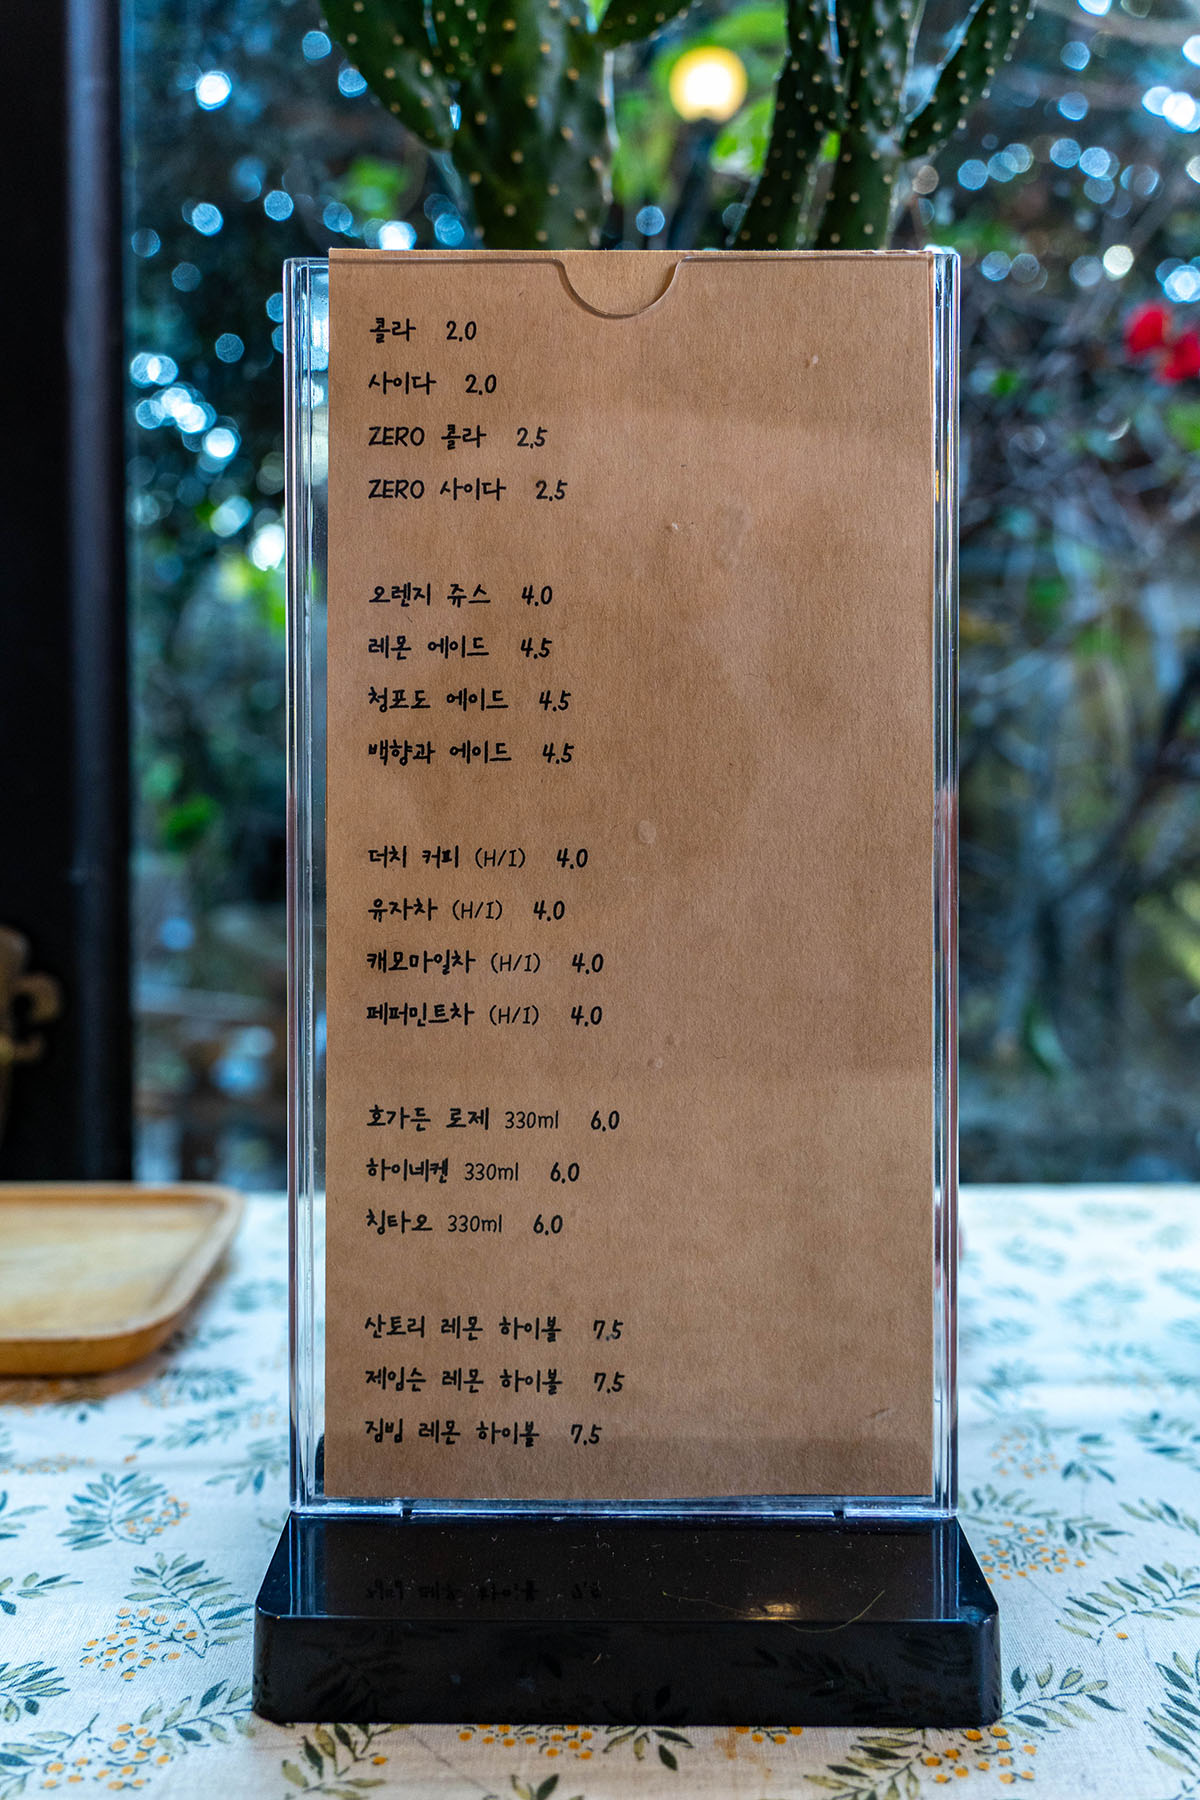 콜라 2.0
사이다 2.0
ZERO 콜라 2.5
ZERO 사이다 2.5
오렌지 쥬스 4.0
레몬 에이드 4.5
청포도 에이드 4.5
백향과 에이드 4.5
더치 커피 (H/I) 4.0
유자차 (H/I) 4.0
캐모마일차 (H/I) 4.0
페퍼민트차 (H/I) 4.0
호가든 로제 330ml 6.0
하이네켄 330ml 6.0
칭타오 330ml 6.0
산토리 레몬 하이볼 7.5
제임슨 레몬 하이볼 7.5
짐빔 레몬 하이볼 7.5